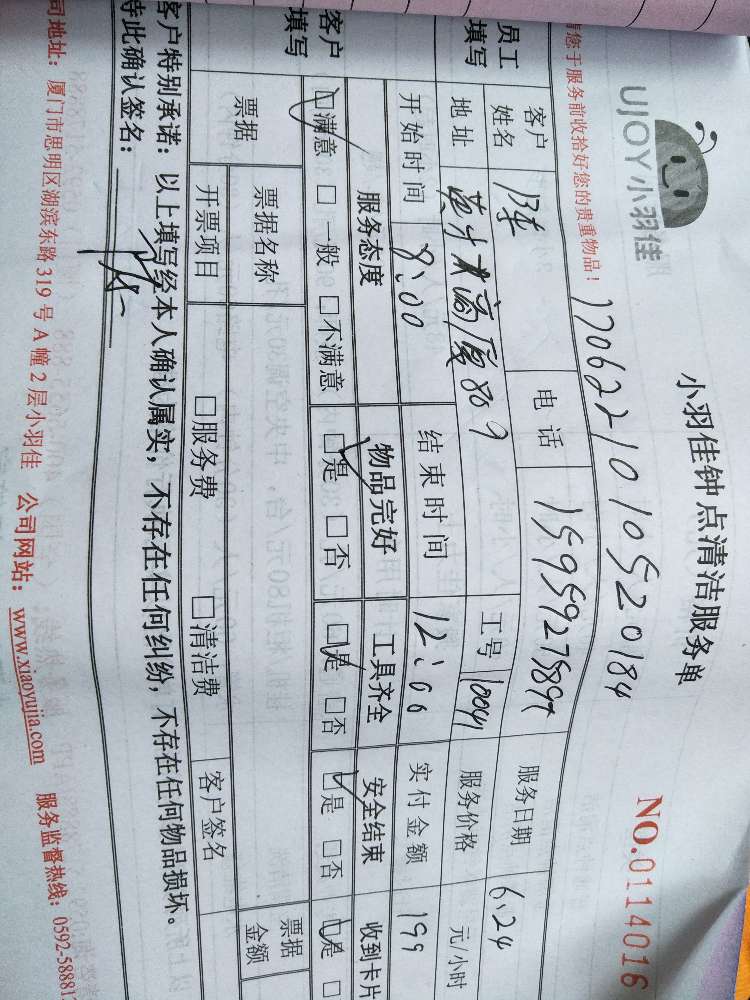 小羽佳钟点清洁服务单
UJOY小羽佳
NO.0114016
1706221010520184
请您于服务前收拾好您的贵重物品！
员工填写
客户姓名 陈 电话 服务日期 6.24
地址 英才大商厦809 工号 10041 服务价格 元/小时
开始时间 8:00 结束时间 12:00 实付金额 199
客户填写
服务态度 物品完好 工具齐全 安全结束 收到卡片
☑满意 □一般 □不满意 ☑是 □否 ☑是 □否 ☑是 □否 ☑是 □
票据 票据名称 票据金额
开票项目 □服务费 □清洁费 客户签名
客户特别承诺：以上填写经本人确认属实，不存在任何纠纷，不存在任何物品损坏。
特此确认签名：
司地址：厦门市思明区湖滨东路319号A幢2层小羽佳 公司网站：www.xiaoyujia.com 服务监督热线：0592-58881